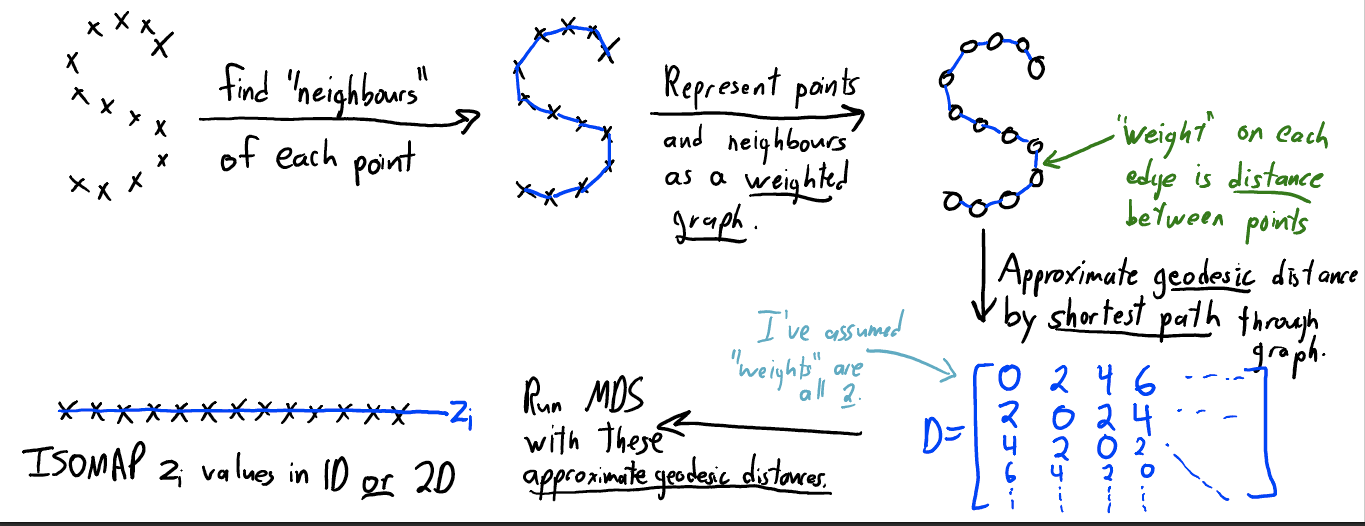 find "neighbours"
of each point
Represent points
and neighbours
as a weighted
graph.
"weight" on each
edge is distance
between points
Approximate geodesic distance
by shortest path through
graph.
I've assumed
"weights" are
all 2.
D=
0 2 4 6 -----
2 0 2 4 ---
4 2 0 2
6 4 2 0
Run MDS
with these
approximate geodesic distances.
zi
ISOMAP zi values in 1D or 2D